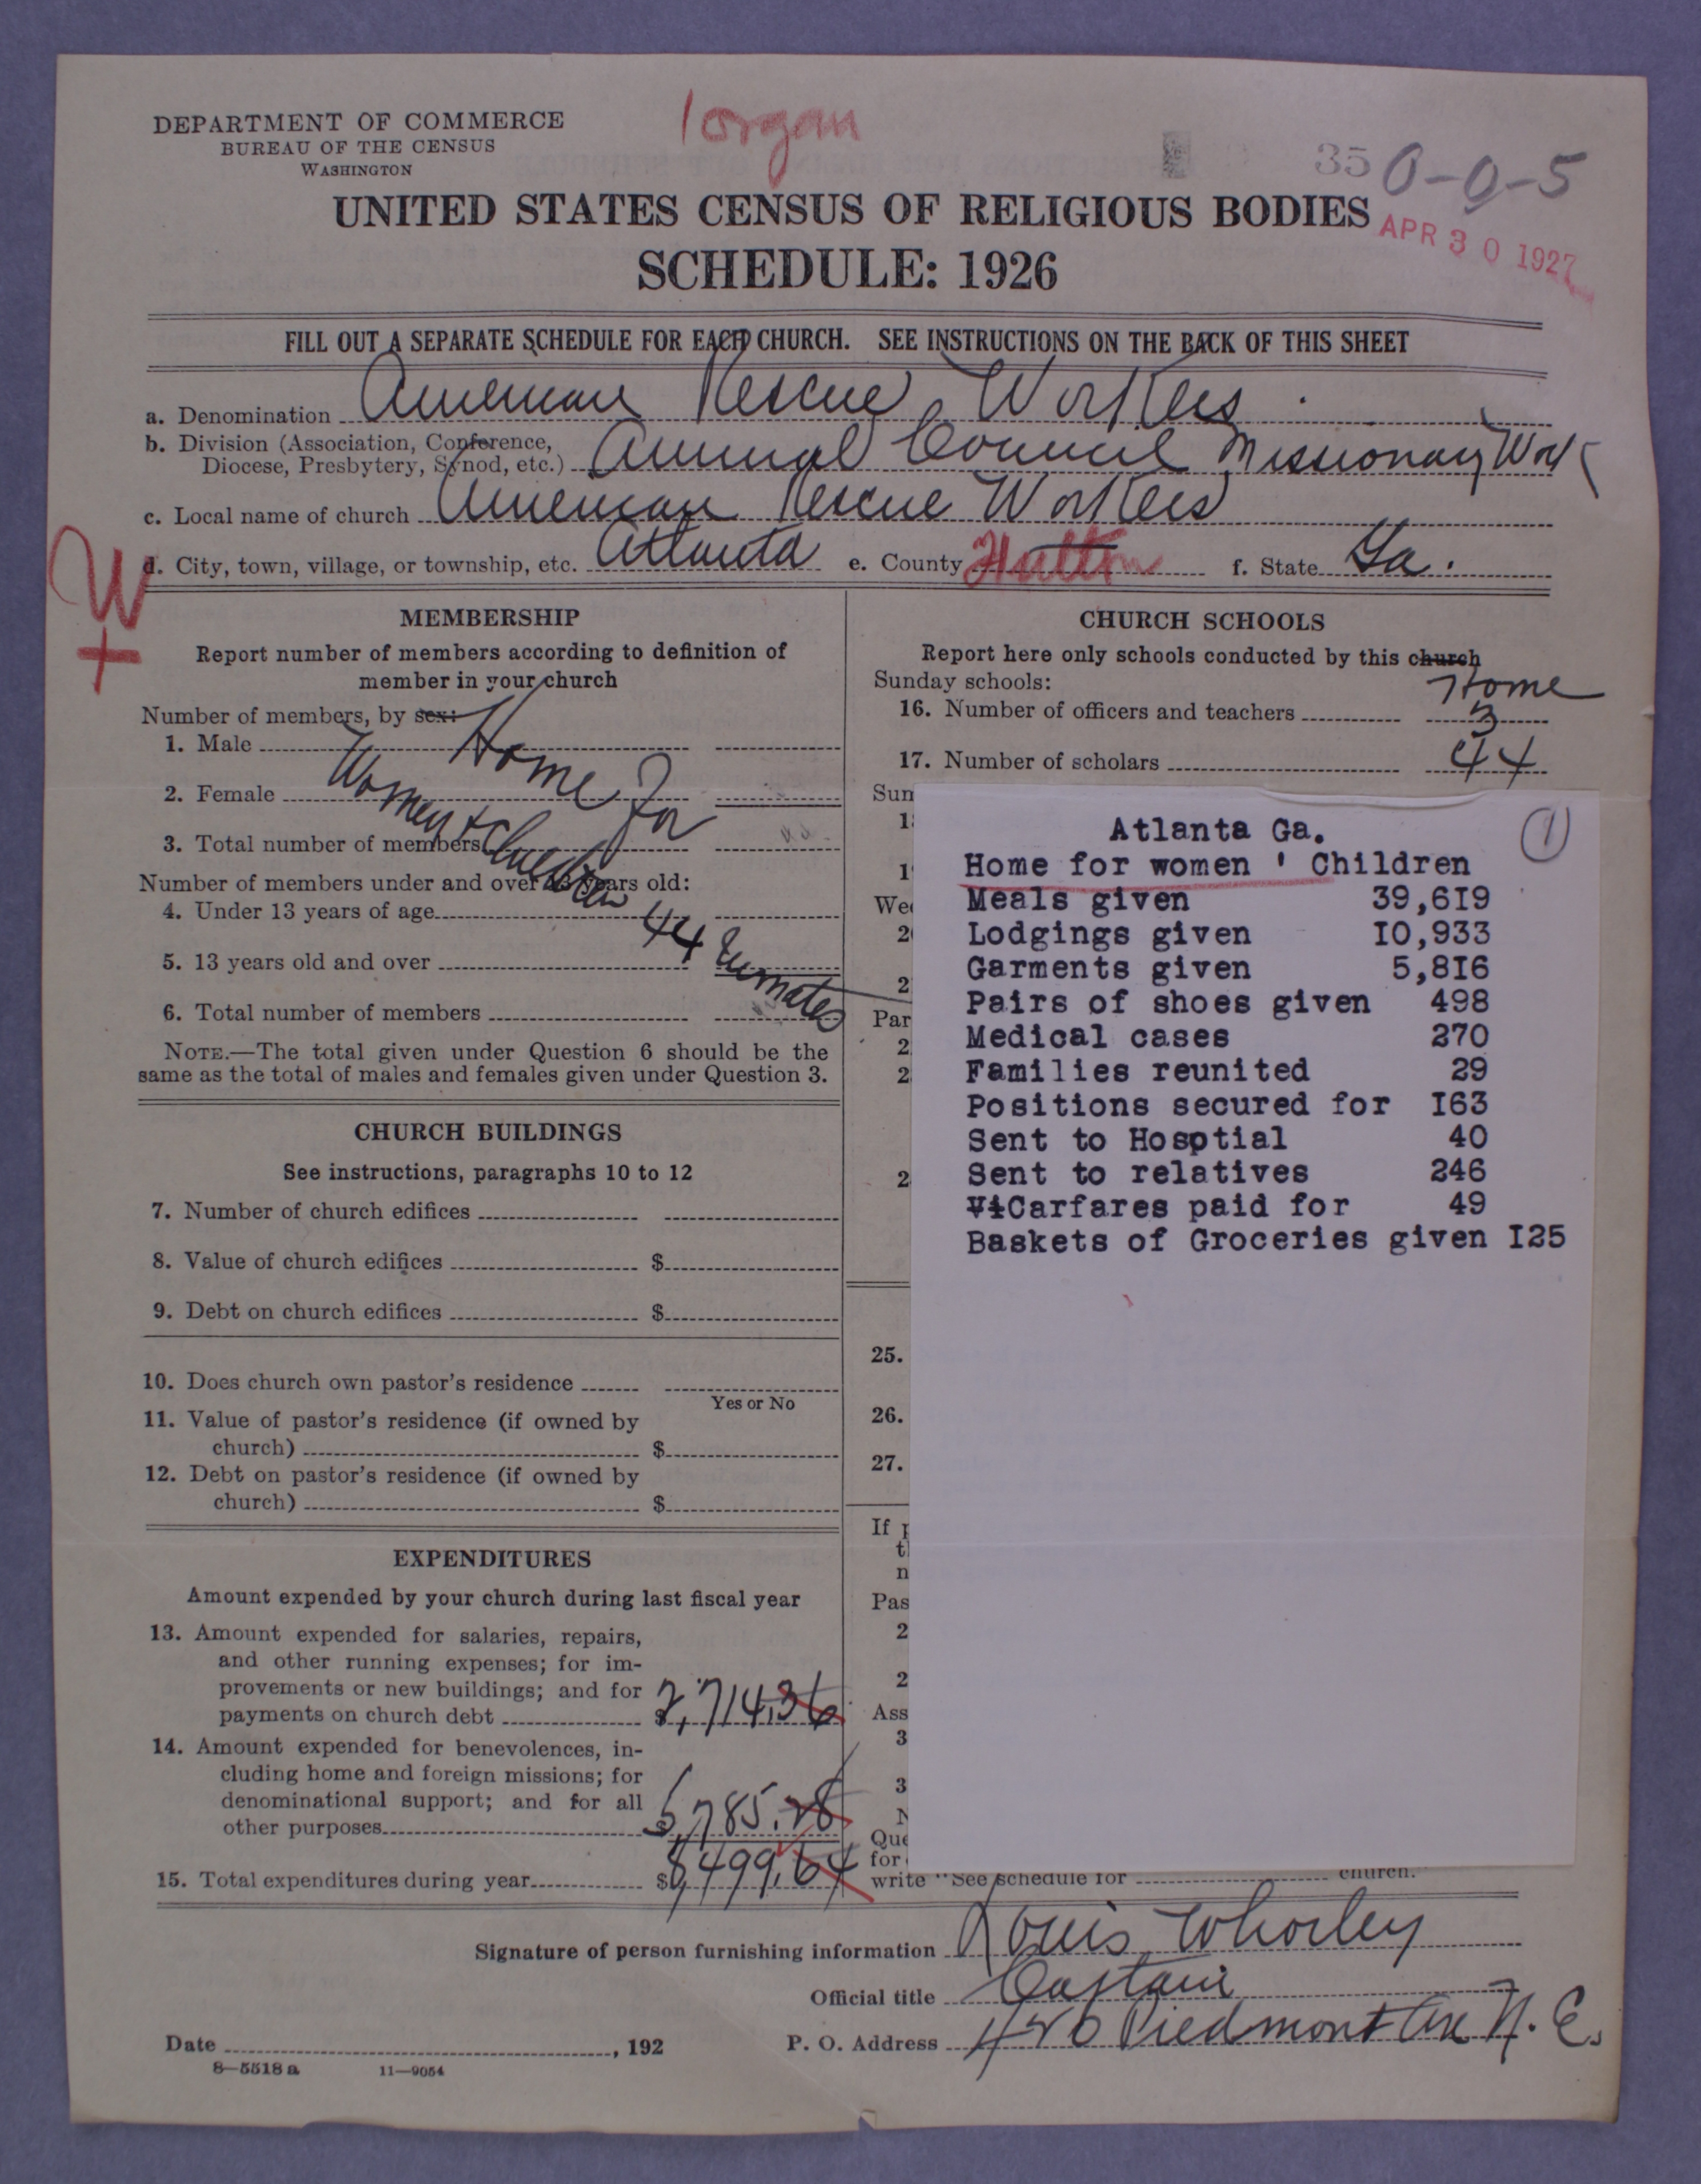 1 organ
DEPARTMENT OF COMMERCE
BUREAU OF THE CENSUS
WASHINGTON
35 0-0-5
UNITED STATES CENSUS OF RELIGIOUS BODIES
APR 30 1927
SCHEDULE: 1926
FILL OUT A SEPARATE SCHEDULE FOR EACH CHURCH. SEE INSTRUCTIONS ON THE BACK OF THIS SHEET
a. Denomination American Rescue Workers.
b. Division (Association, Conference,
Diocese, Presbytery, Synod, etc.) Annual Council Missionary Work
c. Local name of church American Rescue Workers
d. City, town, village, or township, etc. Atlanta e. County Fulton f. State Ga.
W
+
MEMBERSHIP
Report number of members according to definition of
member in your church
Number of members, by sex:
1. Male
2. Female
3. Total number of members
Home For
Women + Children
44 Inmates
Number of members under and over 13 years old:
4. Under 13 years of age
5. 13 years old and over
6. Total number of members
NOTE.—The total given under Question 6 should be the
same as the total of males and females given under Question 3.
CHURCH BUILDINGS
See instructions, paragraphs 10 to 12
7. Number of church edifices
8. Value of church edifices $
9. Debt on church edifices $
10. Does church own pastor's residence
Yes or No
11. Value of pastor's residence (if owned by
church) $
12. Debt on pastor's residence (if owned by
church) $
EXPENDITURES
Amount expended by your church during last fiscal year
13. Amount expended for salaries, repairs,
and other running expenses; for im-
provements or new buildings; and for
payments on church debt $2,714.36
14. Amount expended for benevolences, in-
cluding home and foreign missions; for
denominational support; and for all
other purposes $5,785.28
15. Total expenditures during year $8,499.64
CHURCH SCHOOLS
Report here only schools conducted by this church
Home
Sunday schools:
16. Number of officers and teachers 3
17. Number of scholars 44
Sun
1
1
Wee
2
2
Par
2
2
2
25.
26.
27.
If
t
n
Pas
2
2
Ass
3
3
N
Que
for
write "See schedule for church."
Atlanta Ga. 1
Home for women ' Children
Meals given 39,6I9
Lodgings given I0,933
Garments given 5,8I6
Pairs of shoes given 498
Medical cases 270
Families reunited 29
Positions secured for I63
Sent to Hosptial 40
Sent to relatives 246
ViCarfares paid for 49
Baskets of Groceries given I25
Signature of person furnishing information Louis Whorley
Official title Captain
Date , 192
P. O. Address 426 Piedmont Ave N. E.
8—5518 a 11—9054